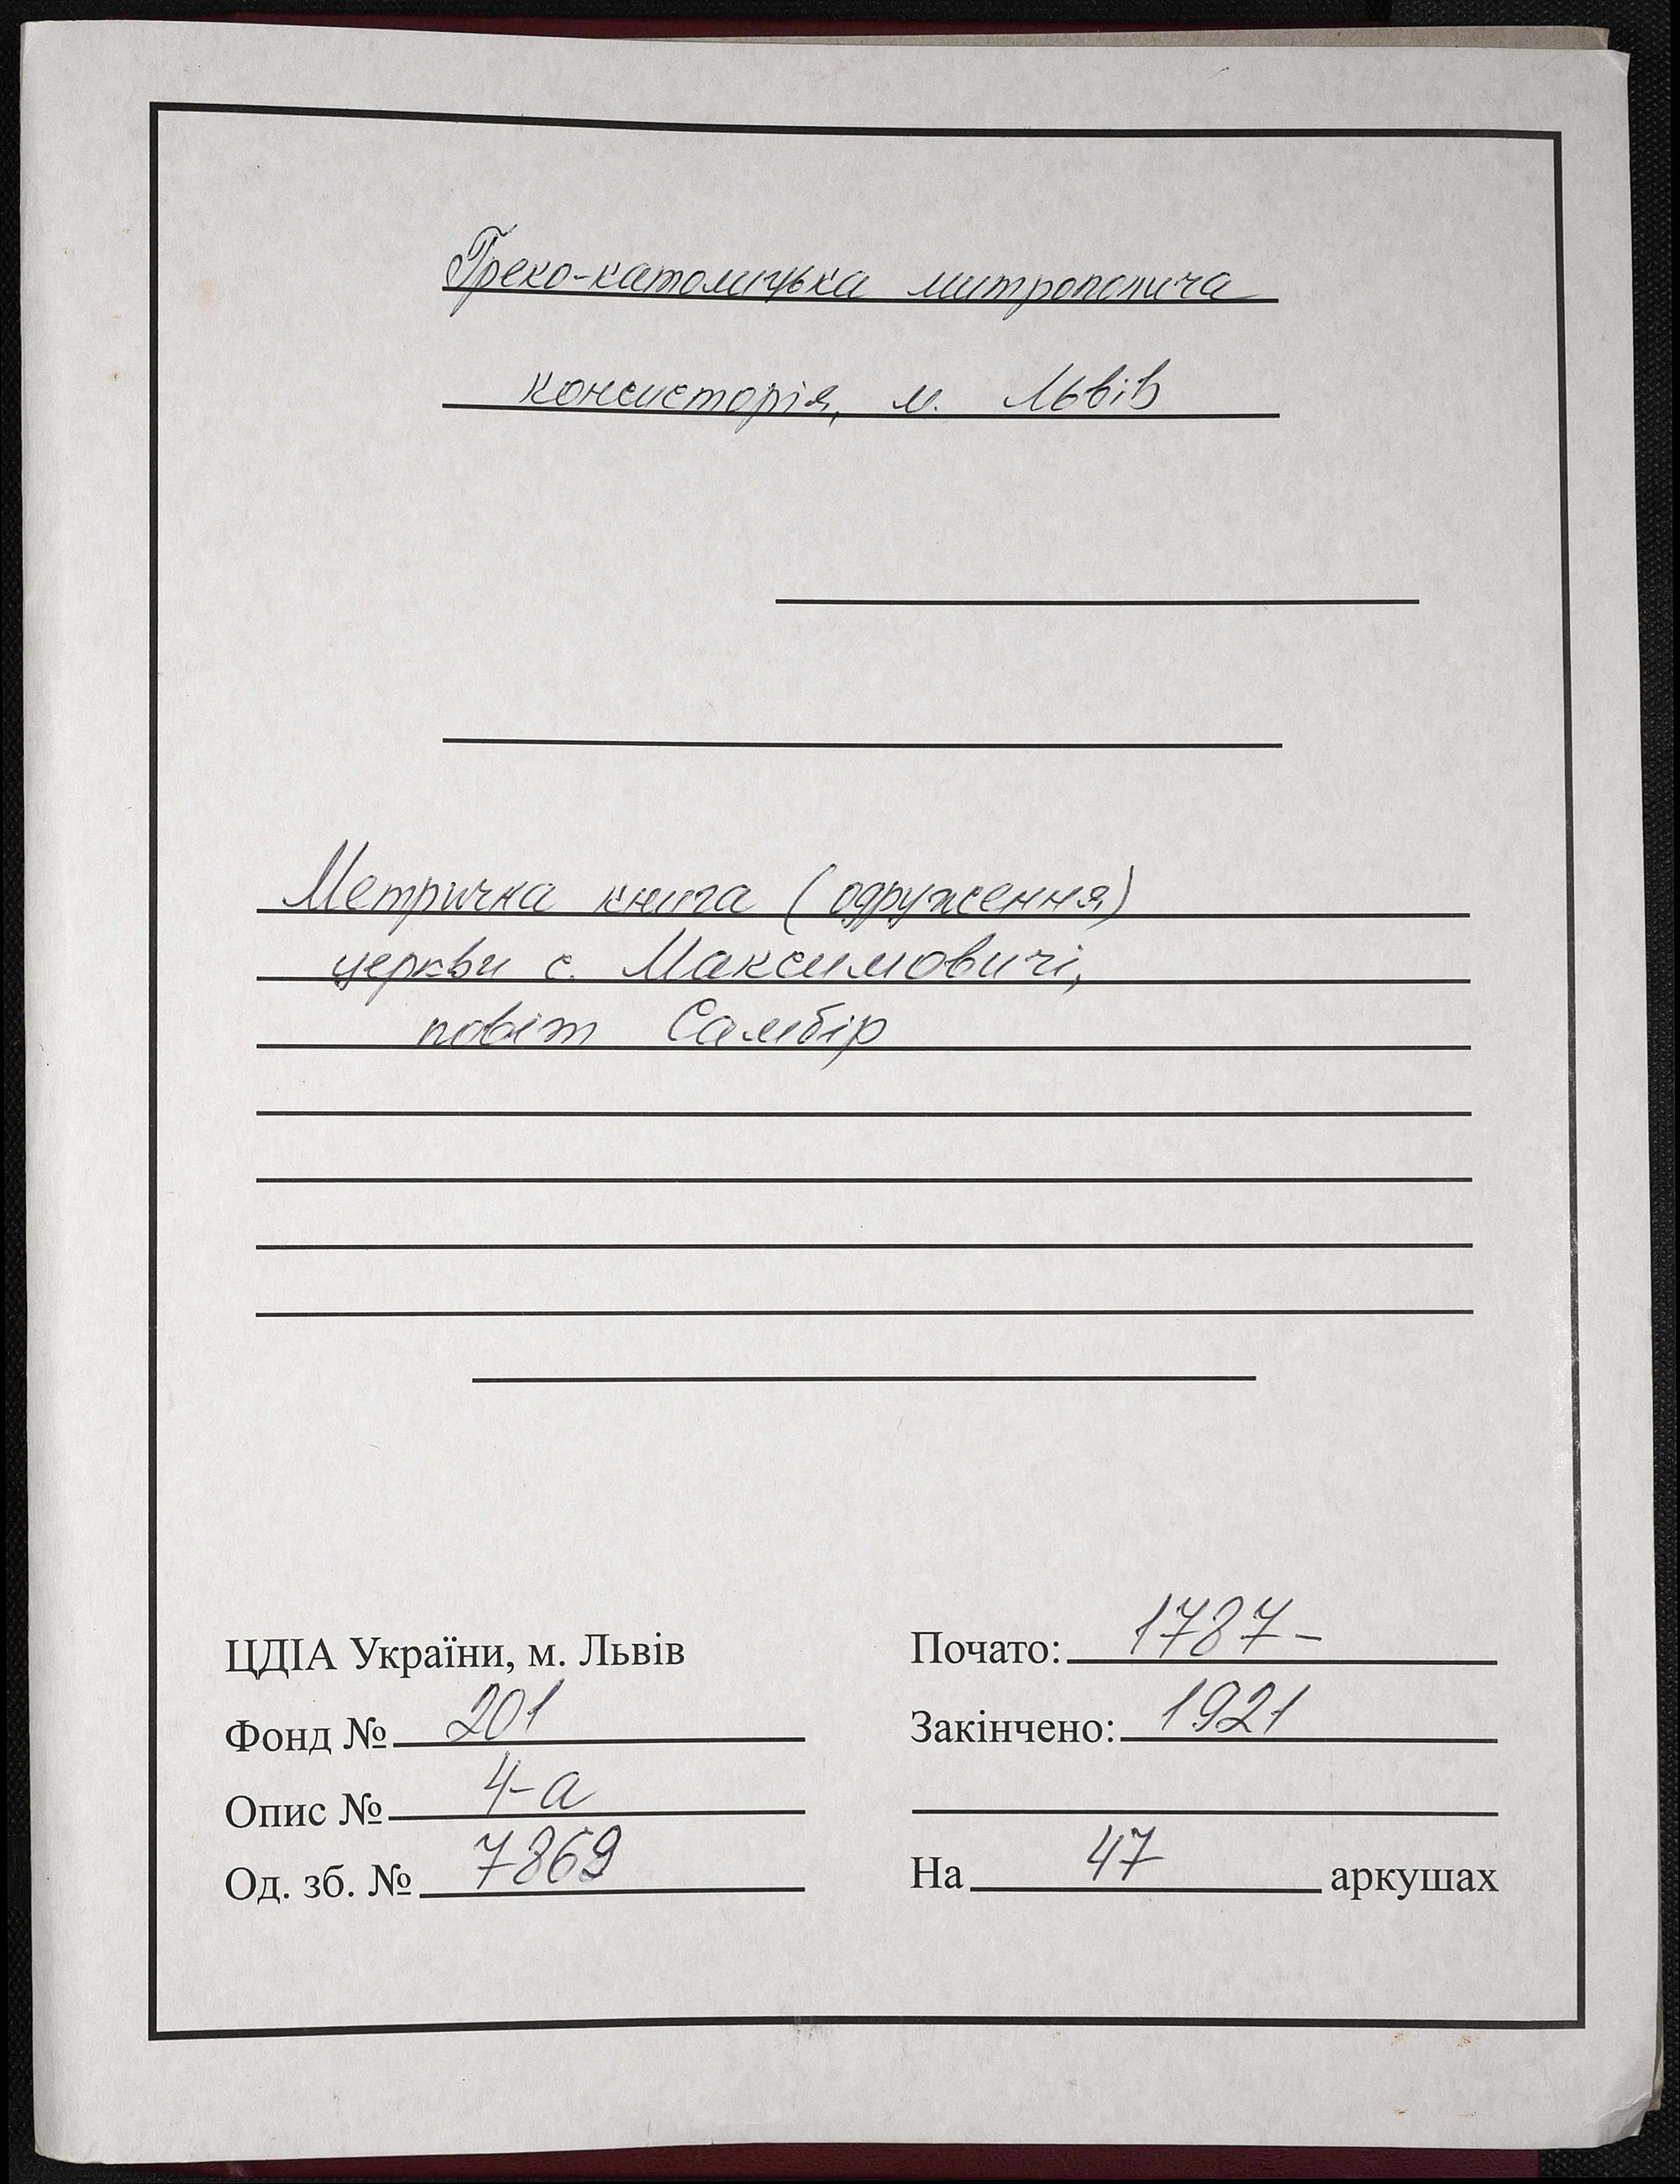 Греко-католицька митрополича
консисторія, м. Львів
Метрична книга (одруження)
церкви с. Максимовичі,
повіт Самбір
ЦДІА України, м. Львів
Фонд № 201
Опис № 4-а
Од. зб. № 7869
Почато: 1787-
Закінчено: 1921
На 47 аркушах